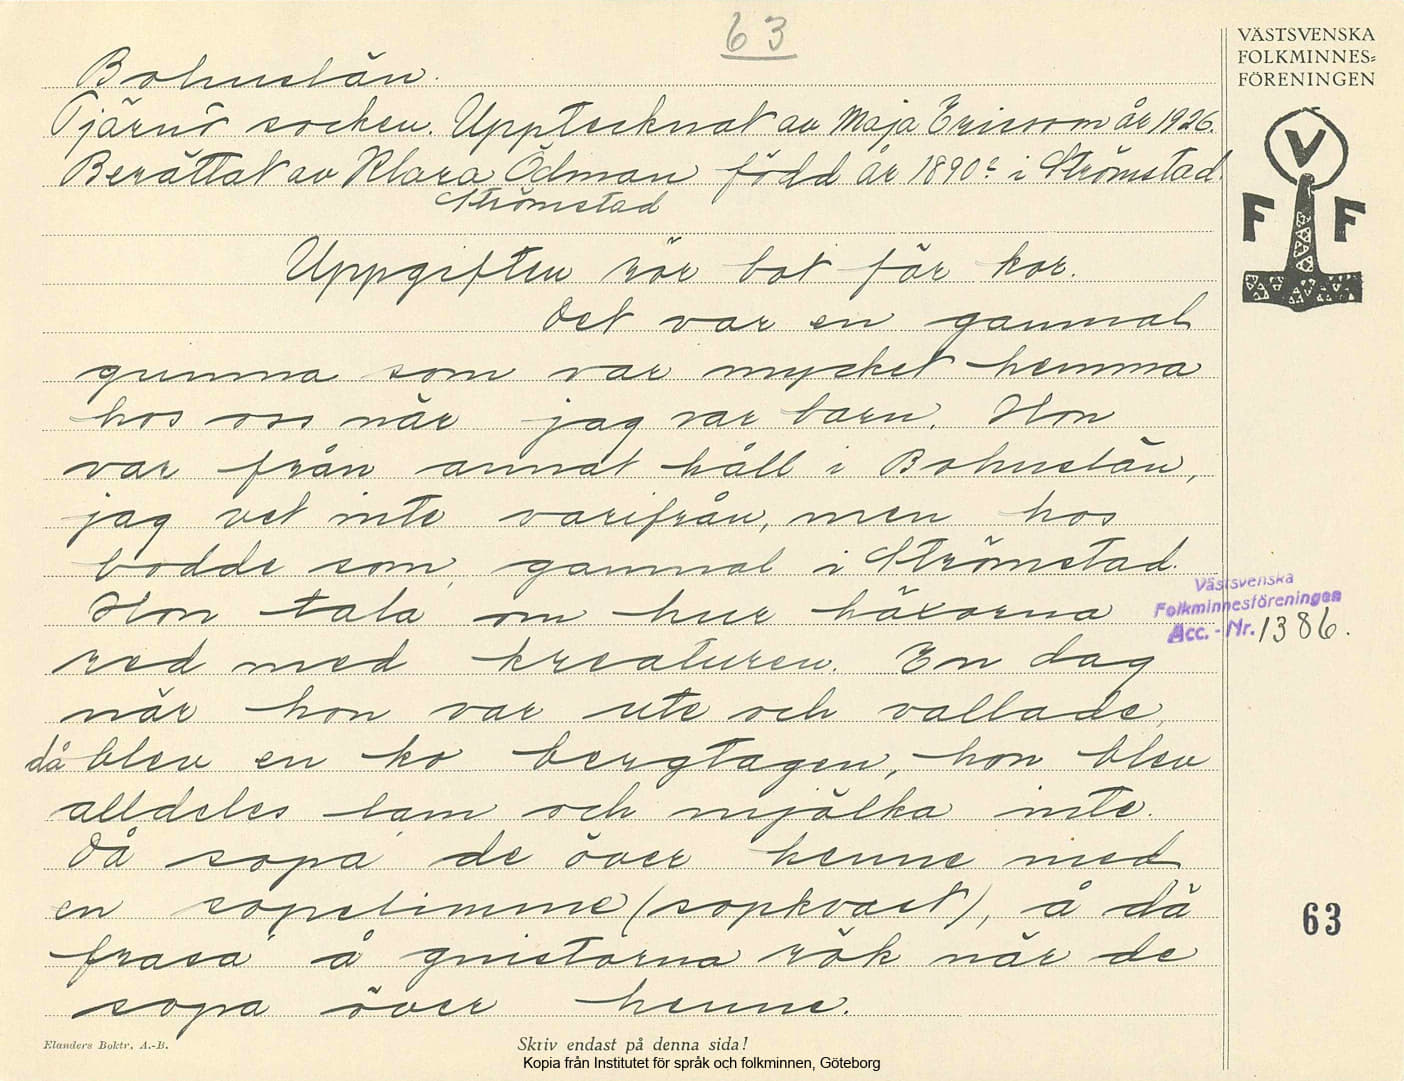 63
VÄSTSVENSKA
FOLKMINNES=
FÖRENINGEN
V
F F
Bohuslän.
Tjärnö socken. Upptecknat av Maja Ericson år 1926.
Berättat av Klara Ödman född år 1890 i Strömstad.
Strömstad
Uppgiften rör bot för kor.
Det var en gammal
gumma som var mycket hemma
hos oss när jag var barn. Hon
var från annat håll i Bohuslän,
jag vet inte varifrån, men hos
bodde som gammal i Strömstad.
Hon tala om hur häxorna
red med kreaturen. En dag
när hon var ute och vallade,
då blev en ko bergtagen, hon blev
alldeles lam och mjölka inte.
Då sopa de över henne med
en sopelimme (sopkvast), å dä
frasa å gnistorna rök när de
sopa över henne.
Västsvenska
Folkminnesföreningen
Acc. - Nr. 1386.
63
Elanders Boktr. A.-B.
Skriv endast på denna sida!
Kopia från Institutet för språk och folkminnen, Göteborg